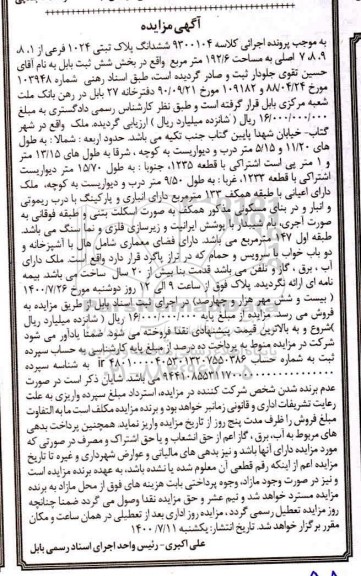 آگهی مزایده
به موجب پرونده اجرائی کلاسه ۹۳۰۰۱۰۴ ششدانگ پلاک ثبتی ۱۰۲۴ فرعی از ۸،۱،
۷،۸،۹ اصلی به مساحت ۱۹۲/۶ متر مربع واقع در بخش شش ثبت بابل به نام آقای
حسین تقوی جلودار ثبت و صادر گردیده است، طبق اسناد رهنی شماره ۱۰۳۹۴۸
مورخ ۸۸/۰۴/۲۴ و ۱۰۹۱۸۲ مورخ ۹۰/۰۹/۲۱ دفترخانه ۲۷ بابل در رهن بانک ملت
شعبه مرکزی بابل قرار گرفته است و طبق نظر کارشناس رسمی دادگستری به مبلغ
۱۶/۰۰۰/۰۰۰/۰۰۰ ریال ( شانزده میلیارد ریال ) ارزیابی گردیده. ملک واقع در شهر
گتاب- خیابان شهدا پایین گتاب جنب تکیه می باشد. حدود اربعه : شمالا : به طول
های ۱۱/۲۰ و ۵/۱۵ متر درب و دیواریست به کوچه ، شرقا به طول های ۱۳/۱۵ متر
و ۱ متر پی است اشتراکی با قطعه ۱۲۳۵، جنوبا : به طول ۱۵/۷۰ متر دیواریست
اشتراکی با قطعه ۱۲۳۳، غربا : به طول ۹/۵۰ متر درب و دیواریست به کوچه، ملک
دارای اعیانی با طبقه همکف ۱۳۳ مترمربع دارای انباری و پارکینگ با درب ریموتی
و انبار و در بنای مسکونی مذکور همکف به صورت اسکلت بتنی و طبقه فوقانی به
صورت آجری، بام شیبدار با پوشش ایرانیت و زیرسازی فلزی و نما سنگ می باشد.
طبقه اول ۱۴۷ مترمربع می باشد. دارای فضای معماری شامل هال با آشپزخانه و
دو باب خواب با سرویس و حمام که در تراز پاگرد قرار دارد واقع است. ملک دارای
آب ، برق ، گاز و تلفن می باشد قدمت بنا بیش از ۲۰ سال ساخت می باشد. بیمه
نامه ای ارائه نگردیده. پلاک فوق از ساعت ۹ الی ۱۲ روز دوشنبه مورخ ۱۴۰۰/۷/۲۶
( بیست و شش مهر هزار و چهارصد) در اجرای ثبت اسناد بابل از طریق مزایده به
فروش می رسد. مزایده از مبلغ پایه ۱۶/۰۰۰/۰۰۰/۰۰۰ ریال ( شانزده میلیارد ریال
)شروع و به بالاترین قیمت پیشنهادی نقدا فروخته می شود. ضمنا یادآور می شود
شرکت در مزایده منوط به پرداخت ده درصد از مبلغ پایه کارشناسی به حساب سپرده
ثبت به شماره حساب به شناسه سپرده
می باشد. شایان ذکر است در صورت
عدم برنده شدن شخص شرکت کننده در مزایده، استرداد مبلغ سپرده واریزی به علت
رعایت تشریفات اداری و قانونی زمانبر خواهد بود و برنده مزایده مکلف است ما به التفاوت
مبلغ فروش را ظرف مدت پنج روز از تاریخ مزایده واریز نماید. همچنین پرداخت بدهی
های مربوط به آب، برق ، گاز اعم از حق انشعاب و یا حق اشتراک و مصرف در صورتی که
مورد مزایده دارای آنها باشد و نیز بدهی های مالیاتی و عوارض شهرداری و غیره تا تاریخ
مزایده اعم از اینکه رقم قطعی آن معلوم شده یا نشده باشد، به عهده برنده مزایده است
و نیز در صورت وجود مازاد، وجوه پرداختی بابت هزینه های فوق از محل مازاد به برنده
مزایده مسترد خواهد شد و نیم عشر و حق مزایده نقدا وصول می گردد ضمنا چنانچه
روز مزایده تعطیل رسمی گردد ، مزایده روز اداری بعد از تعطیلی در همان ساعت و مکان
مقرر برگزار خواهد شد. تاریخ انتشار: یکشنبه ۱۴۰۰/۷/۱۱
علی اکبری- رئیس واحد اجرای اسناد رسمی بابل